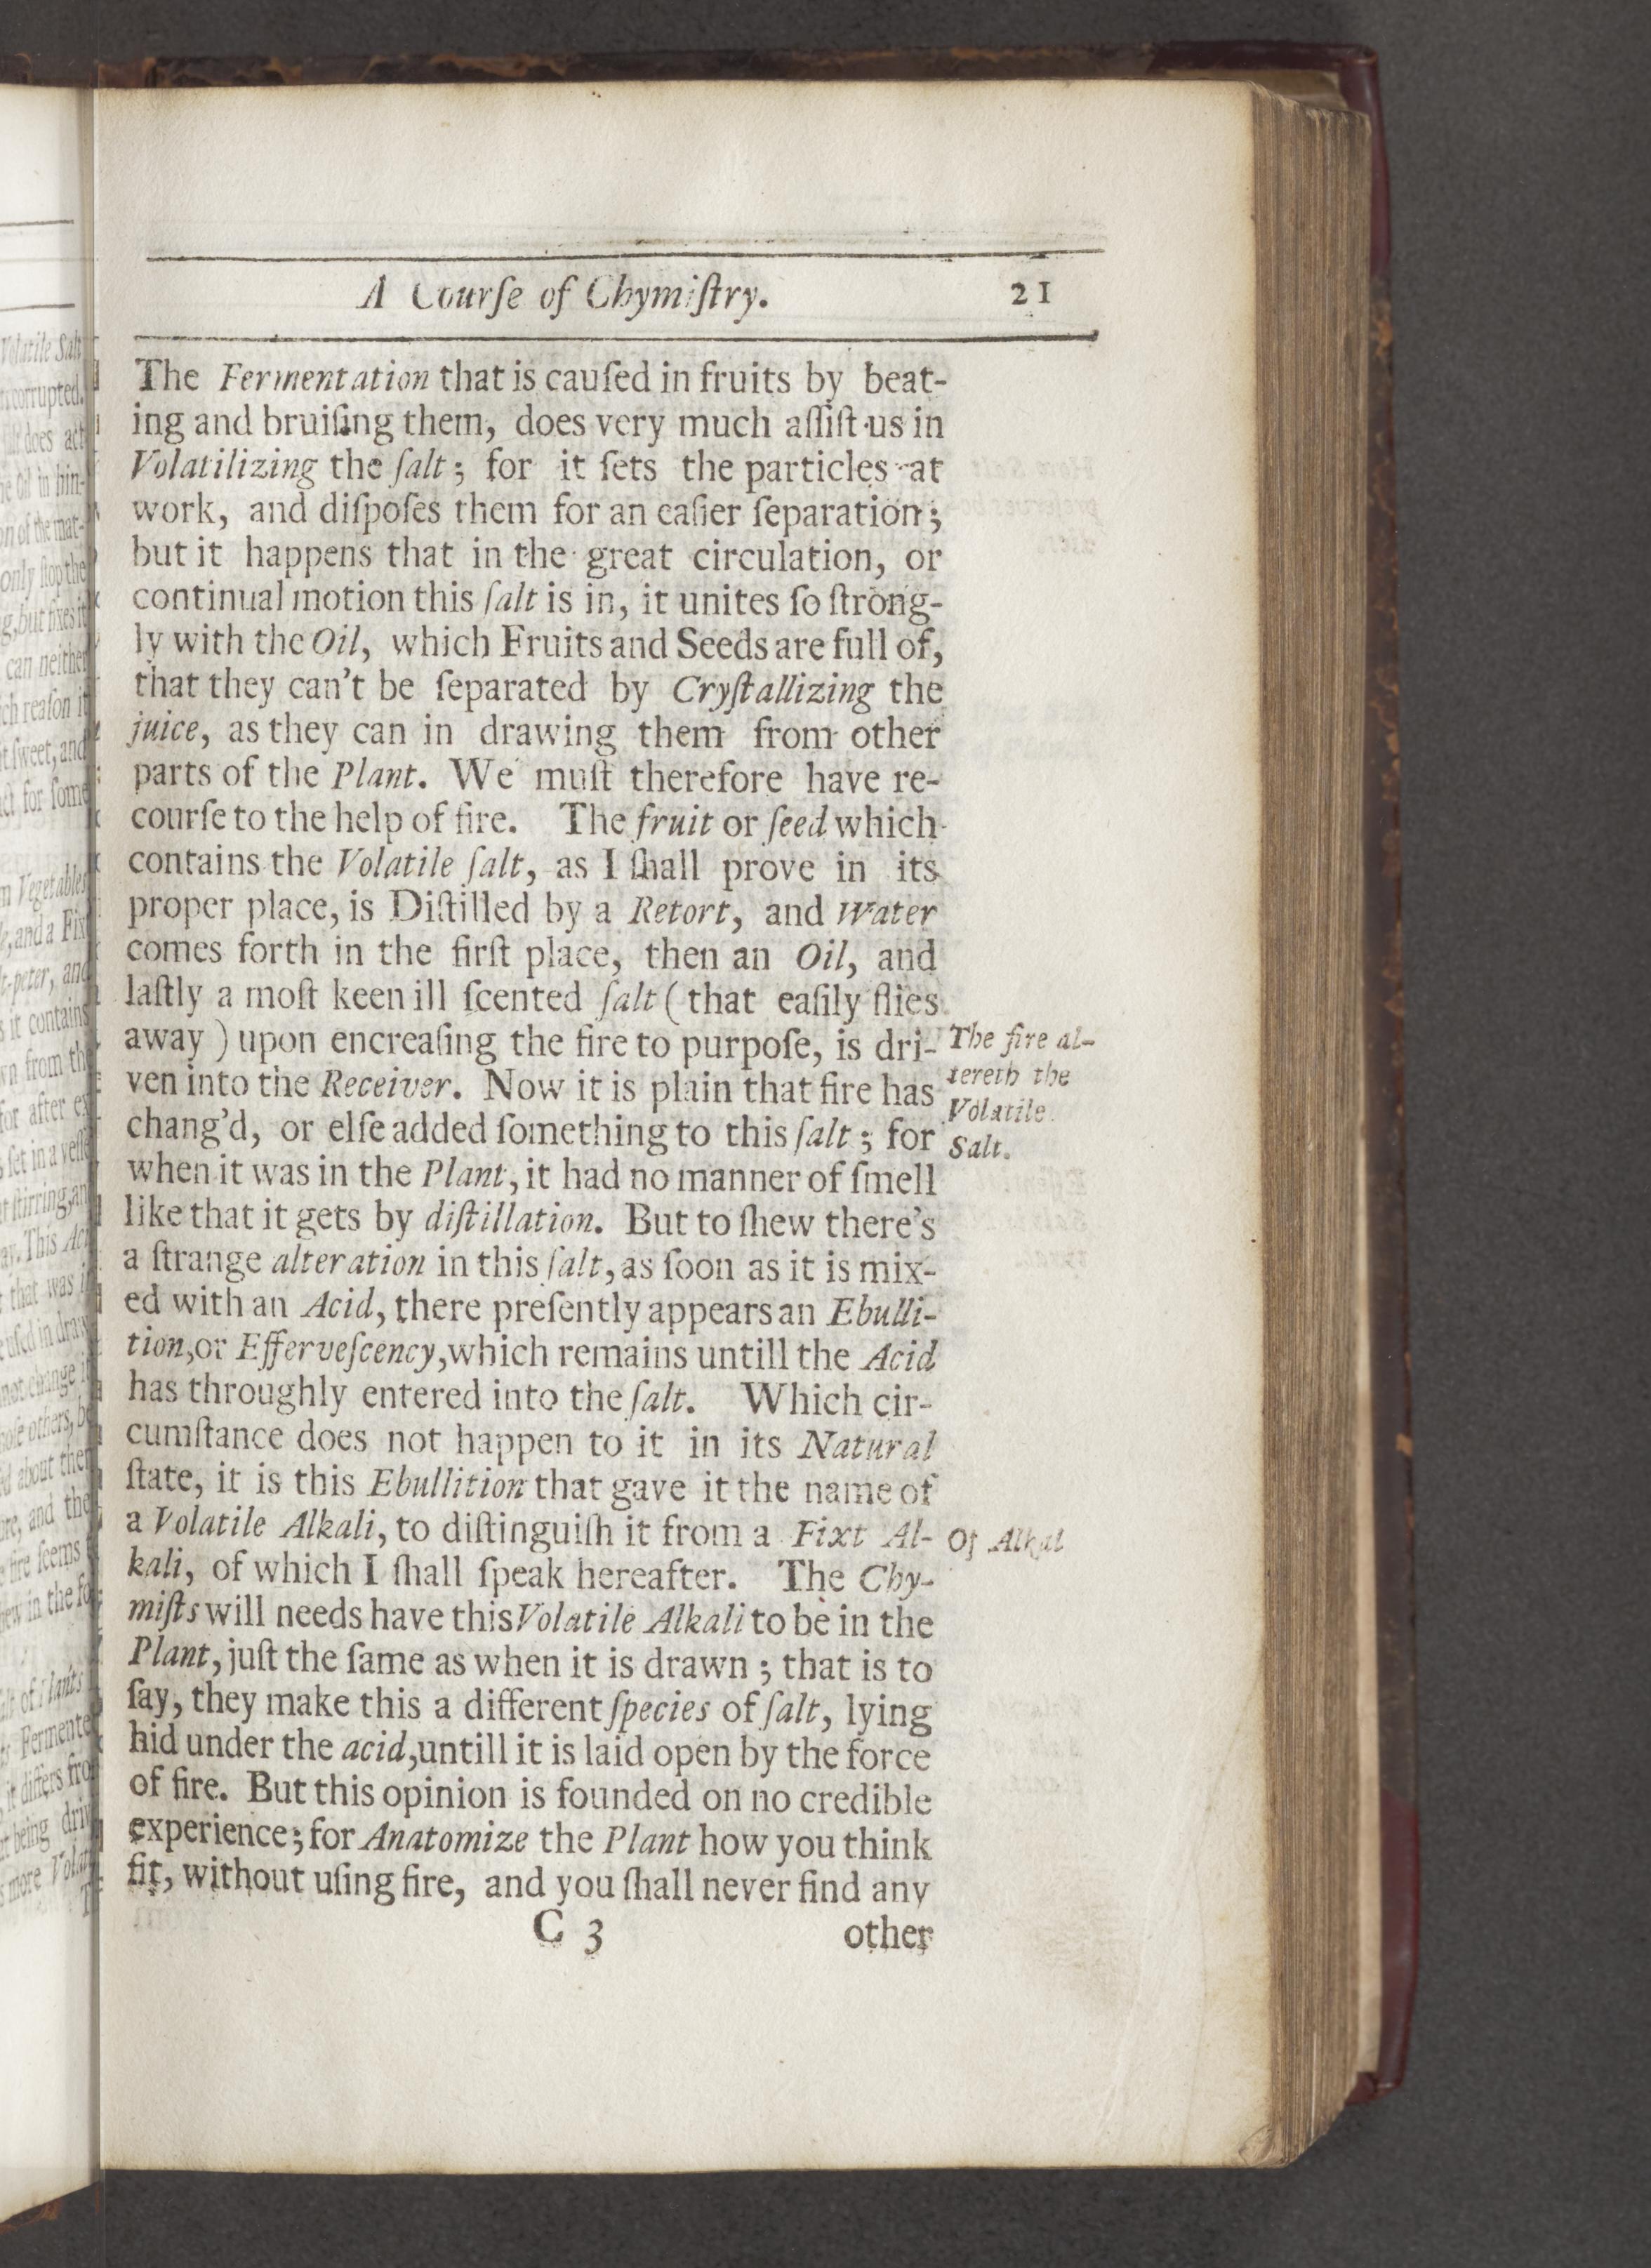 A Courſe of Chymiſtry. 21
The Fermentation that is cauſed in fruits by beat-
ing and bruiſing them, does very much aſſiſt us in
Volatilizing the ſalt; for it ſets the particles at
work, and diſpoſes them for an eaſier ſeparation;
but it happens that in the great circulation, or
continual motion this ſalt is in, it unites ſo ſtrong-
ly with the Oil, which Fruits and Seeds are full of,
that they can't be ſeparated by Cryſtallizing the
juice, as they can in drawing them from other
parts of the Plant. We muſt therefore have re-
courſe to the help of fire. The fruit or ſeed which
contains the Volatile ſalt, as I ſhall prove in its
proper place, is Diſtilled by a Retort, and Water
comes forth in the firſt place, then an Oil, and
laſtly a moſt keen ill ſcented ſalt (that eaſily flies
away) upon encreaſing the fire to purpoſe, is dri-
ven into the Receiver. Now it is plain that fire has
chang'd, or elſe added ſomething to this ſalt; for
when it was in the Plant, it had no manner of ſmell
like that it gets by diſtillation. But to ſhew there's
a ſtrange alteration in this ſalt, as ſoon as it is mix-
ed with an Acid, there preſently appears an Ebulli-
tion, or Efferveſcency, which remains untill the Acid
has throughly entered into the ſalt. Which cir-
cumſtance does not happen to it in its Natural
ſtate, it is this Ebullition that gave it the name of
a Volatile Alkali, to diſtinguiſh it from a Fixt Al-
kali, of which I ſhall ſpeak hereafter. The Chy-
miſts will needs have this Volatile Alkali to be in the
Plant, juſt the ſame as when it is drawn; that is to
ſay, they make this a different ſpecies of ſalt, lying
hid under the acid, untill it is laid open by the force
of fire. But this opinion is founded on no credible
experience; for Anatomize the Plant how you think
fit, without uſing fire, and you ſhall never find any
C 3 other
The fire al-
tereth the
Volatile
Salt.
Of Alkal